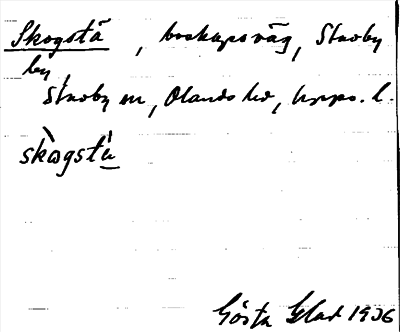 Skogstä , boskapsväg, Stavby
by,
Stavby sn, Olands hd, Upps. l.
skògstä̀
Gösta Glad 1936